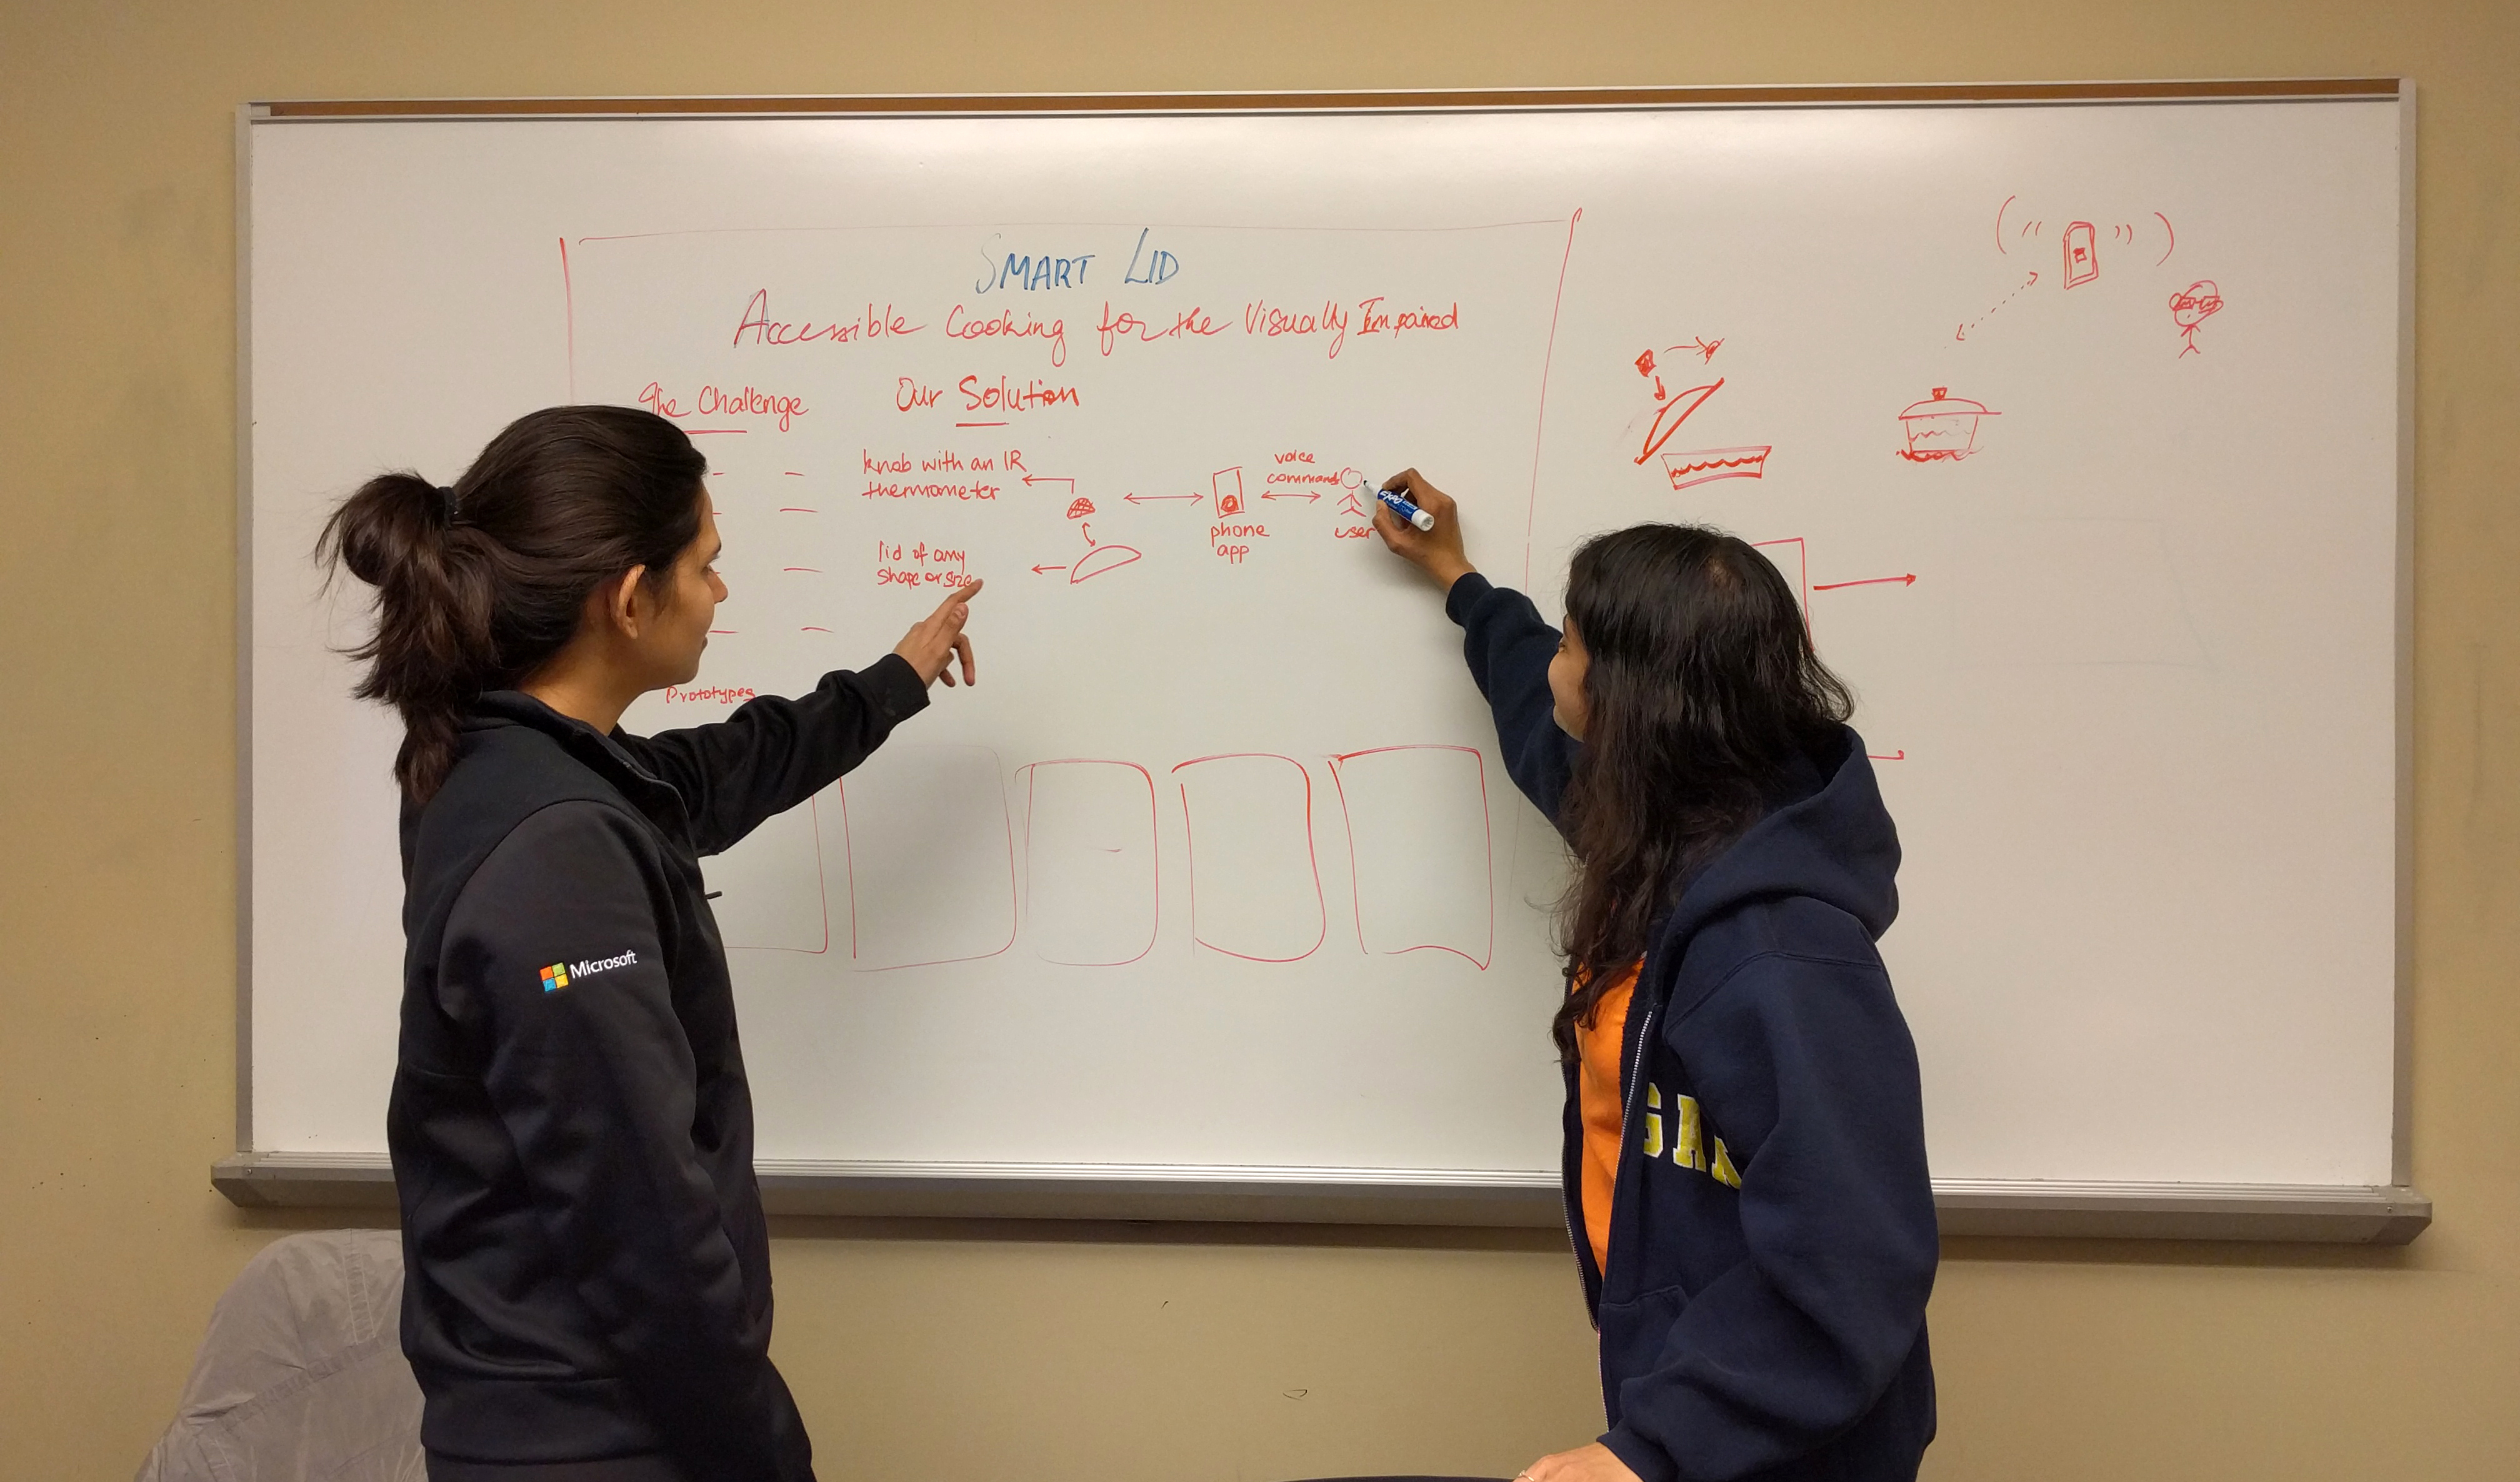 SMART LID
Accessible Cooking for the Visually Impaired
The Challenge
Our Solution
knob with an IR
thermometer
lid of any
shape or size
voice
command
phone
app
user
Prototypes
EXPO
Microsoft